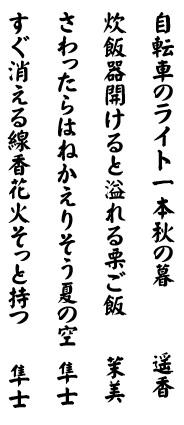 自転車のライト一本秋の暮　遥香
炊飯器開けると溢れる栗ご飯　茉美
さわったらはねかえりそう夏の空　隼士
すぐ消える線香花火そっと持つ　隼士